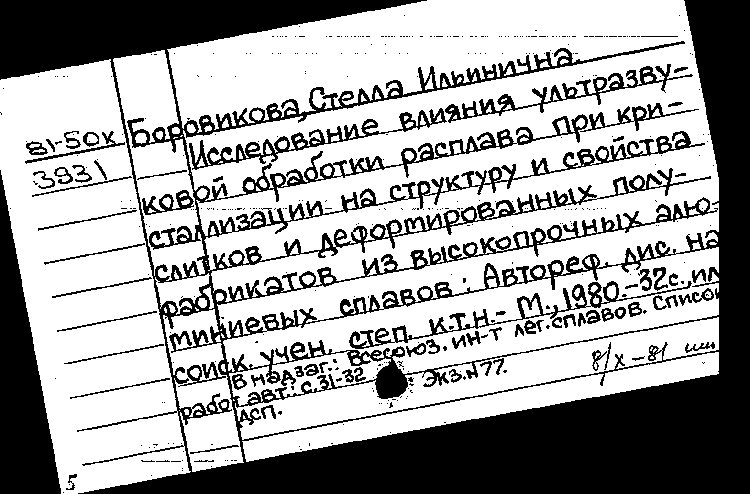 81-50к
3931
Боровикова, Стелла Ильинична.
Исследование влияния ультразву-
ковой обработки расплава при кри-
сталлизации на структуру и свойства
слитков и деформированных полу-
фабрикатов из высокопрочных алю-
миниевых сплавов: Автореф. дис. на
соиск. учен. степ. к.т.н. - М., 1980. - 32с., ил
В надзаг.: Всесоюз. ин-т лег. сплавов. Список
работ авт.: с.31-32 Экз.N77.
ДСП.
8/X-81
5